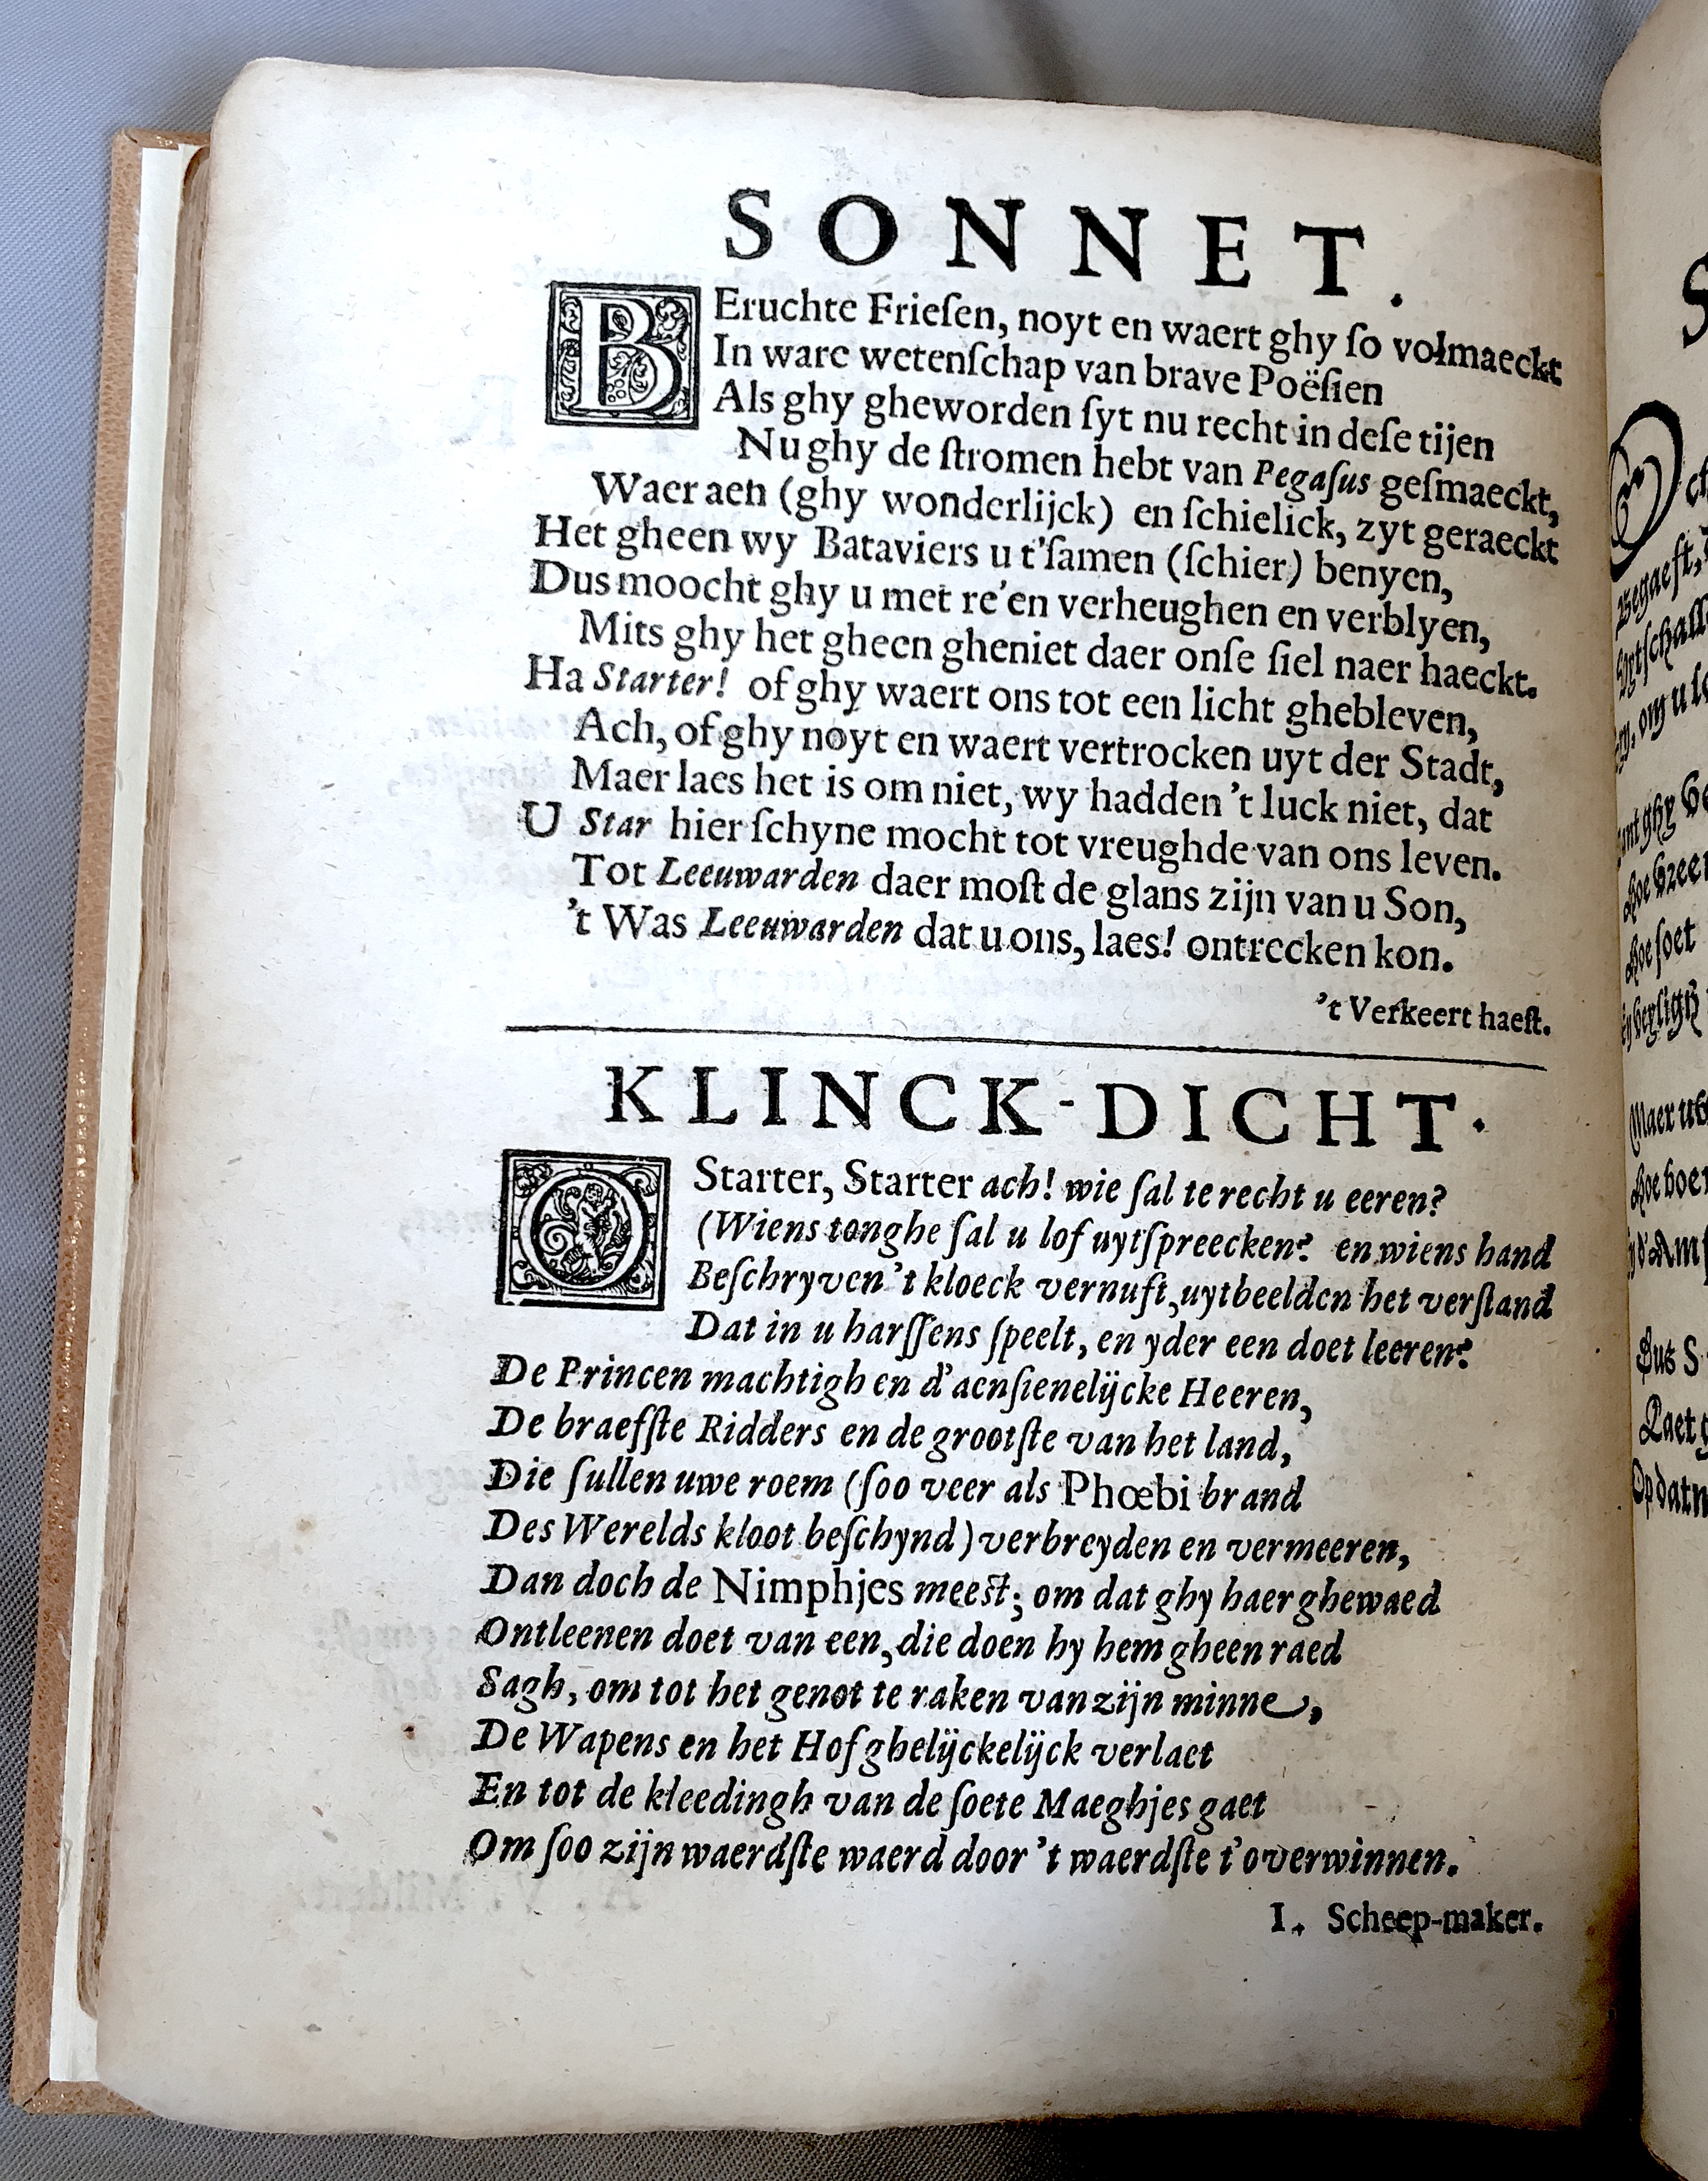 SONNET.
BEruchte Frieſen, noyt en waert ghy ſo volmaeckt
In ware wetenſchap van brave Poëſien
Als ghy gheworden ſyt nu recht in deſe tijen
Nu ghy de ſtromen hebt van Pegaſus geſmaeckt,
Waer aen (ghy wonderlijck) en ſchielick, zyt geraeckt
Het gheen wy Bataviers u t'ſamen (ſchier) benyen,
Dus moocht ghy u met re'en verheughen en verblyen,
Mits ghy het gheen gheniet daer onſe ſiel naer haeckt.
Ha Starter! of ghy waert ons tot een licht ghebleven,
Ach, of ghy noyt en waert vertrocken uyt der Stadt,
Maer laes het is om niet, wy hadden 't luck niet, dat
U Star hier ſchyne mocht tot vreughde van ons leven.
Tot Leeuwarden daer moſt de glans zijn van u Son,
't Was Leeuwarden dat u ons, laes! ontrecken kon.
't Verkeert haeſt.
KLINCK-DICHT.
O Starter, Starter ach! wie ſal te recht u eeren?
(Wiens tonghe ſal u lof uytſpreecken? en wiens hand
Beſchryven 't kloeck vernuft, uytbeelden het verſtand
Dat in u harſſens ſpeelt, en yder een doet leeren?
De Princen machtigh en d'aenſienelijcke Heeren,
De braefſte Ridders en de grootſte van het land,
Die ſullen uwe roem (ſoo veer als Phœbi brand
Des Werelds kloot beſchynd) verbreyden en vermeeren,
Dan doch de Nimphjes meeſt; om dat ghy haer ghewaed
Ontleenen doet van een, die doen hy hem gheen raed
Sagh, om tot het genot te raken van zijn minne,
De Wapens en het Hof ghelijckelijck verlaet
En tot de kleedingh van de ſoete Maeghjes gaet
Om ſoo zijn waerdſte waerd door 't waerdſte t'overwinnen.
I. Scheep-maker.